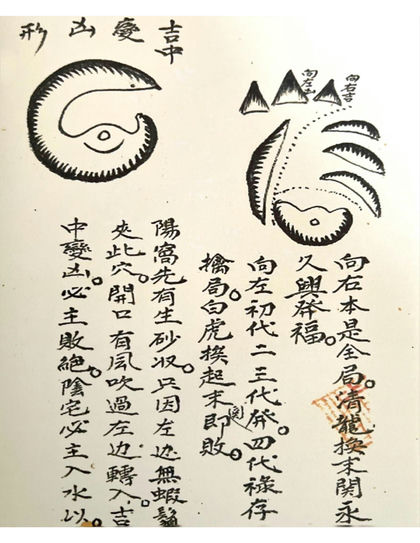 向右吉
向左
向右本是全局。清龍挨末関永
久興發福。
向左初代二三代發四代祿存
擒局。白虎挨起末関即敗。
吉中變凶形
陽窩先有生砂收。只因左边無蝦鬚
夾此穴。開口有風吹過左边轉入。吉
中變凶。必主敗絕。陰宅必主入水以。